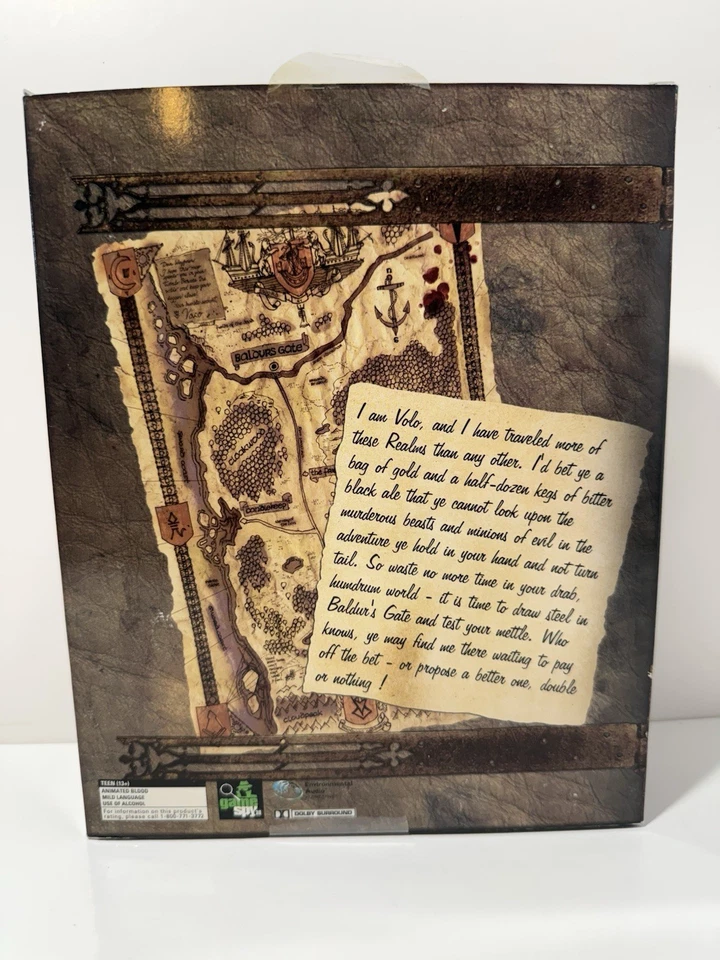 BALDURS GATE
Cloakwood
Candlekeep
I am Volo, and I have traveled more of
these Realms than any other. I'd bet ye a
bag of gold and a half-dozen kegs of bitter
black ale that ye cannot look upon the
murderous beasts and minions of evil in the
adventure ye hold in your hand and not turn
tail. So waste no more time in your drab,
humdrum world - it is time to draw steel in
Baldur's Gate and test your mettle. Who
knows, ye may find me there waiting to pay
off the bet - or propose a better one, double
or nothing !
Cloudpeak
TEEN (13+)
ANIMATED BLOOD
MILD LANGUAGE
USE OF ALCOHOL
For information on this product's
rating, please call 1-800-771-3772
game
spy
Environmental
Audio
DOLBY SURROUND